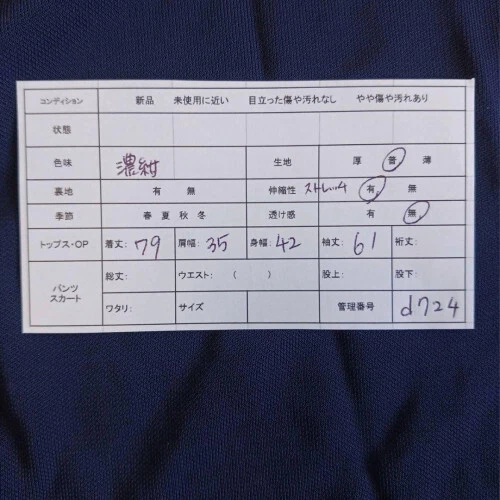 コンディション 新品 未使用に近い 目立った傷や汚れなし やや傷や汚れあり
状態
色味 濃紺 生地 厚 普 薄
裏地 有 無 伸縮性 ストレッチ 有 無
季節 春 夏 秋 冬 透け感 有 無
トップス・OP 着丈: 79 肩幅: 35 身幅: 42 袖丈: 61 裄丈:
パンツ スカート 総丈: ウエスト: ( ) 股上: 股下:
ワタリ: サイズ 管理番号 d724